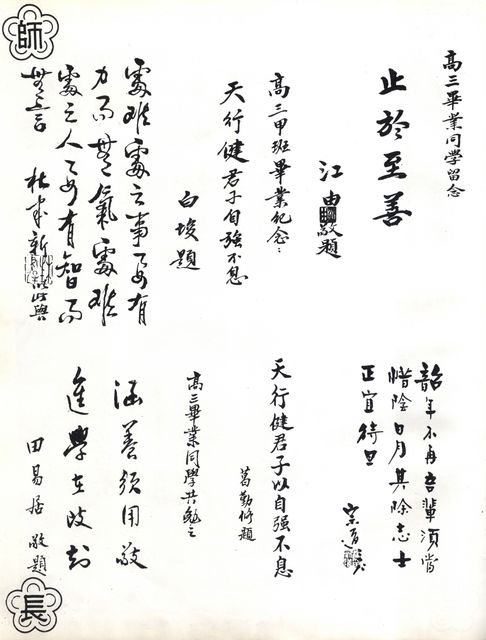 師
高三畢業同學留念
止於至善
江由敬題
高三甲班畢業紀念：
天行健君子自強不息
白埈題
處難處之事要有
力而無氣處難
處之人要有智而
無言 杜家新
韶年不再吾輩須當
惜陰日月其除志士
正宜待旦
宗道
天行健君子以自强不息
葛勤修題
高三畢業同學共勉之
涵養須用敬
進學在致知
田易居 敬題
長